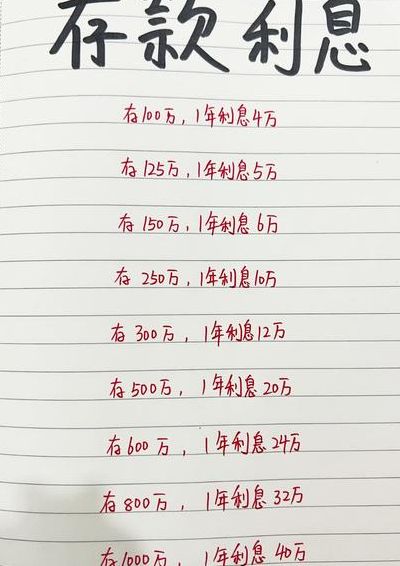 存款利息
存100万，1年利息4万
存125万，1年利息5万
存150万，1年利息6万
存250万，1年利息10万
存300万，1年利息12万
存500万，1年利息20万
存600万，1年利息24万
存800万，1年利息32万
存1000万，1年利息40万